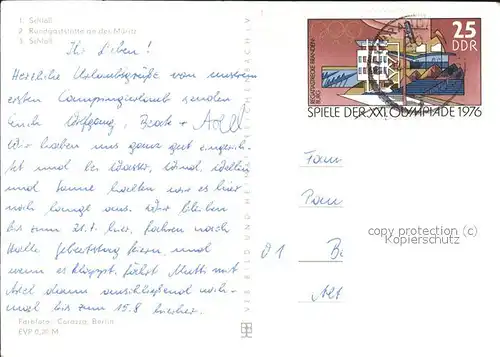 1. Schloß
2. Rundgaststätte an der Müritz
3. Schloß
Ihr Lieben!
Herzliche Urlaubsgrüße von unserem
ersten Campingurlaub senden
Euch Wolfgang, Beate + Axel
Wir haben uns ganz gut eingerich-
tet und bei Wasser, Wind, Wellen
und Sonne halten wir es hier
noch lange aus. Wir bleiben
bis zum 21.7. hier, fahren nach
Halle Geburtstag feiern und
wenn es klappt, fährt Mutti mit
Axel dann anschließend noch-
mal bis zum 15.8. hierher.
Farbfoto: Carozza, Berlin
EVP 0,20 M
VEB BILD UND HEIMAT
25
DDR
REGATTASTRECKE BRANDEN-
BURG
SPIELE DER XXI. OLYMPIADE 1976
Fam
copyright protection (c)
Kopierschutz